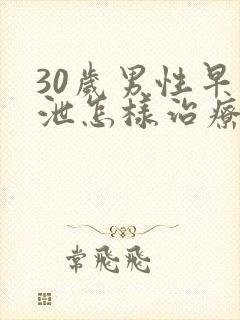 30歲男性早
泄怎樣治療
常飛飛